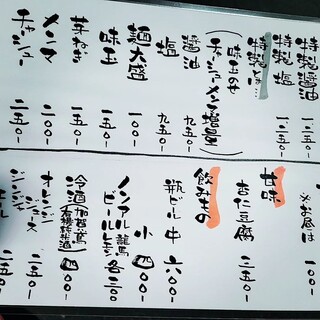 特製醤油 一、二五〇-
特製塩 一、二五〇-
特製とは…
(味玉のせ
チャーシューメン増量)
醤油 九五〇-
塩 九五〇-
麺大盛 一〇〇-
味玉 一〇〇-
芽ねぎ 一五〇-
メンマ 二〇〇-
チャーシュー 二五〇-
※お昼は 一〇〇-
甘味
杏仁豆腐 二五〇-
飲みもの
瓶ビール 中 六〇〇-
小 四〇〇-
ノンアル龍馬
ビールレモン 各三〇〇-
冷酒 四〇〇-
オレンジ
ジュース 二五〇-
ジンジャー
エール 二五〇-